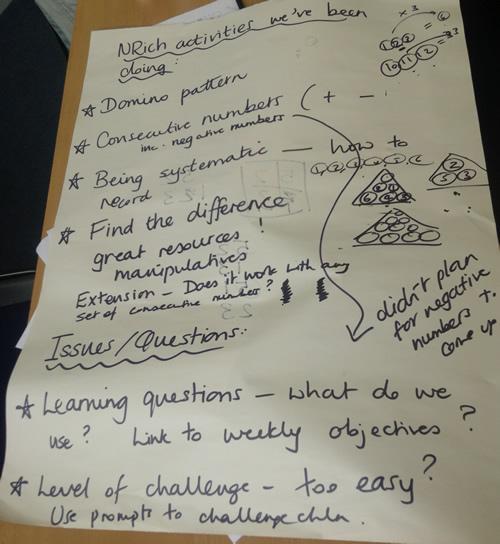 NRich activities we've been
doing:
× 3
1 2 3 = 6
10 11 12 = 33
☆ Domino pattern
☆ Consecutive numbers ( + -
inc. negative numbers
☆ Being systematic — how to
record
1, 2, 3, 4, 5, 6
2
5 3
☆ Find the difference
great resources !
manipulatives
Extension - Does it work with any
set of consecutive numbers?
didn't plan
for negative
numbers to
come up
Issues/Questions:
☆ Learning questions - what do we
use? Link to weekly objectives ?
☆ Level of challenge - too easy?
Use prompts to challenge chln.